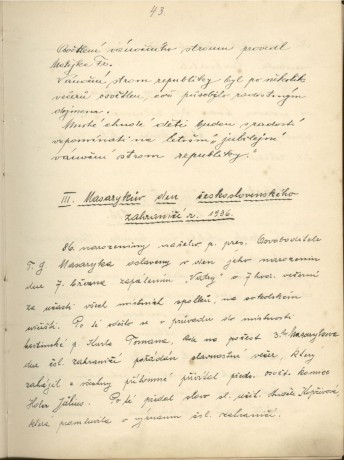 43.
Osvětlení vánočního stromu provedl
Matýka Fr.
Vánoční strom republiky byl po několik
večerů osvětlen, což působilo radostným
dojmem.
Mnohé chudé děti budou s radostí
vzpomínati na letošní jubilejní
vánoční strom republiky."
III. Masarykův den československého
zahraničí r. 1936.
86. narozeniny našeho p. pres. Osvoboditele
T. G. Masaryka oslaveny v den jeho narozenin
dne 7. března zapálením "Vatry" v 7 hod. večerní
za účasti všech místních spolků, na sokolském
cvičišti. Po té odešlo se v průvodu do místnosti
p. Karla Tomana, kde na počest 3. Masarykova
dne čsl. zahraničí pořádán slavnostní večer, který
zahájil a všechny přítomné přivítal předs. osvět. komise
Holer Július. Po té předal slovo sl. učit.
která promluvila o významu čsl. zahraničí.